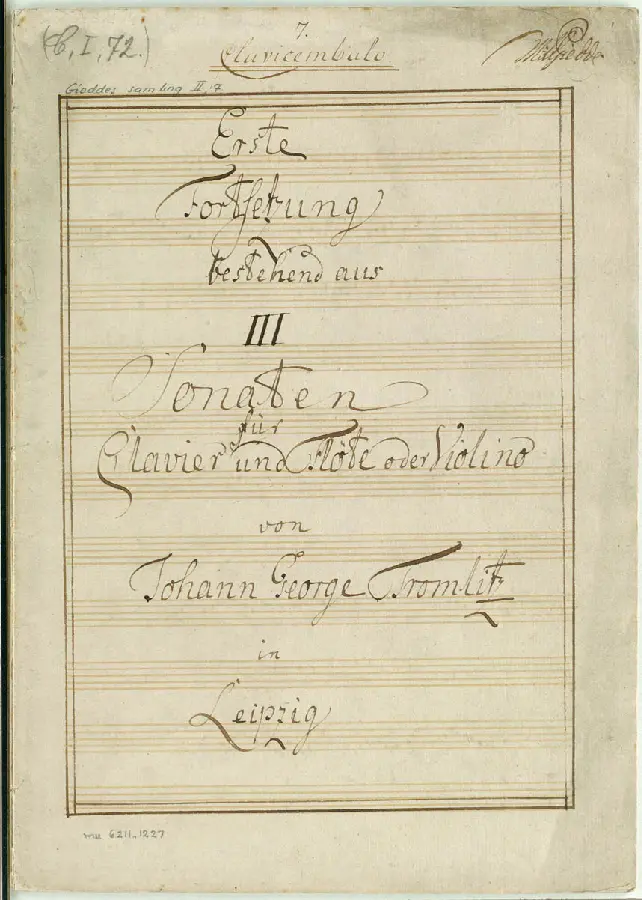 (C, I, 72.)
7.
Clavicembalo
WHGiedde
Gieddes samling II, 7
Erste
Fortsetzung
bestehend aus
III
Sonaten
für
Clavier und Flöte oder Violino
von
Johann George Tromlitz
in
Leipzig
mu 6211.1227